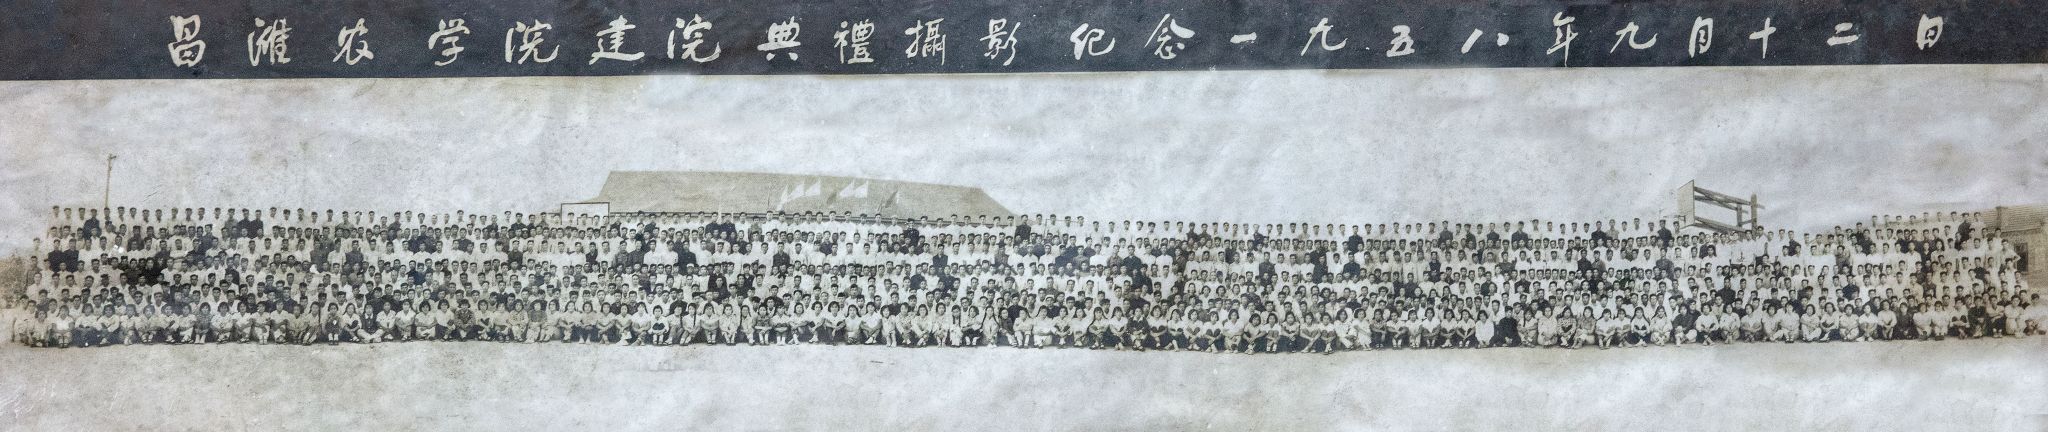 昌潍农学院建院典禮攝影纪念一九五八年九月十二日